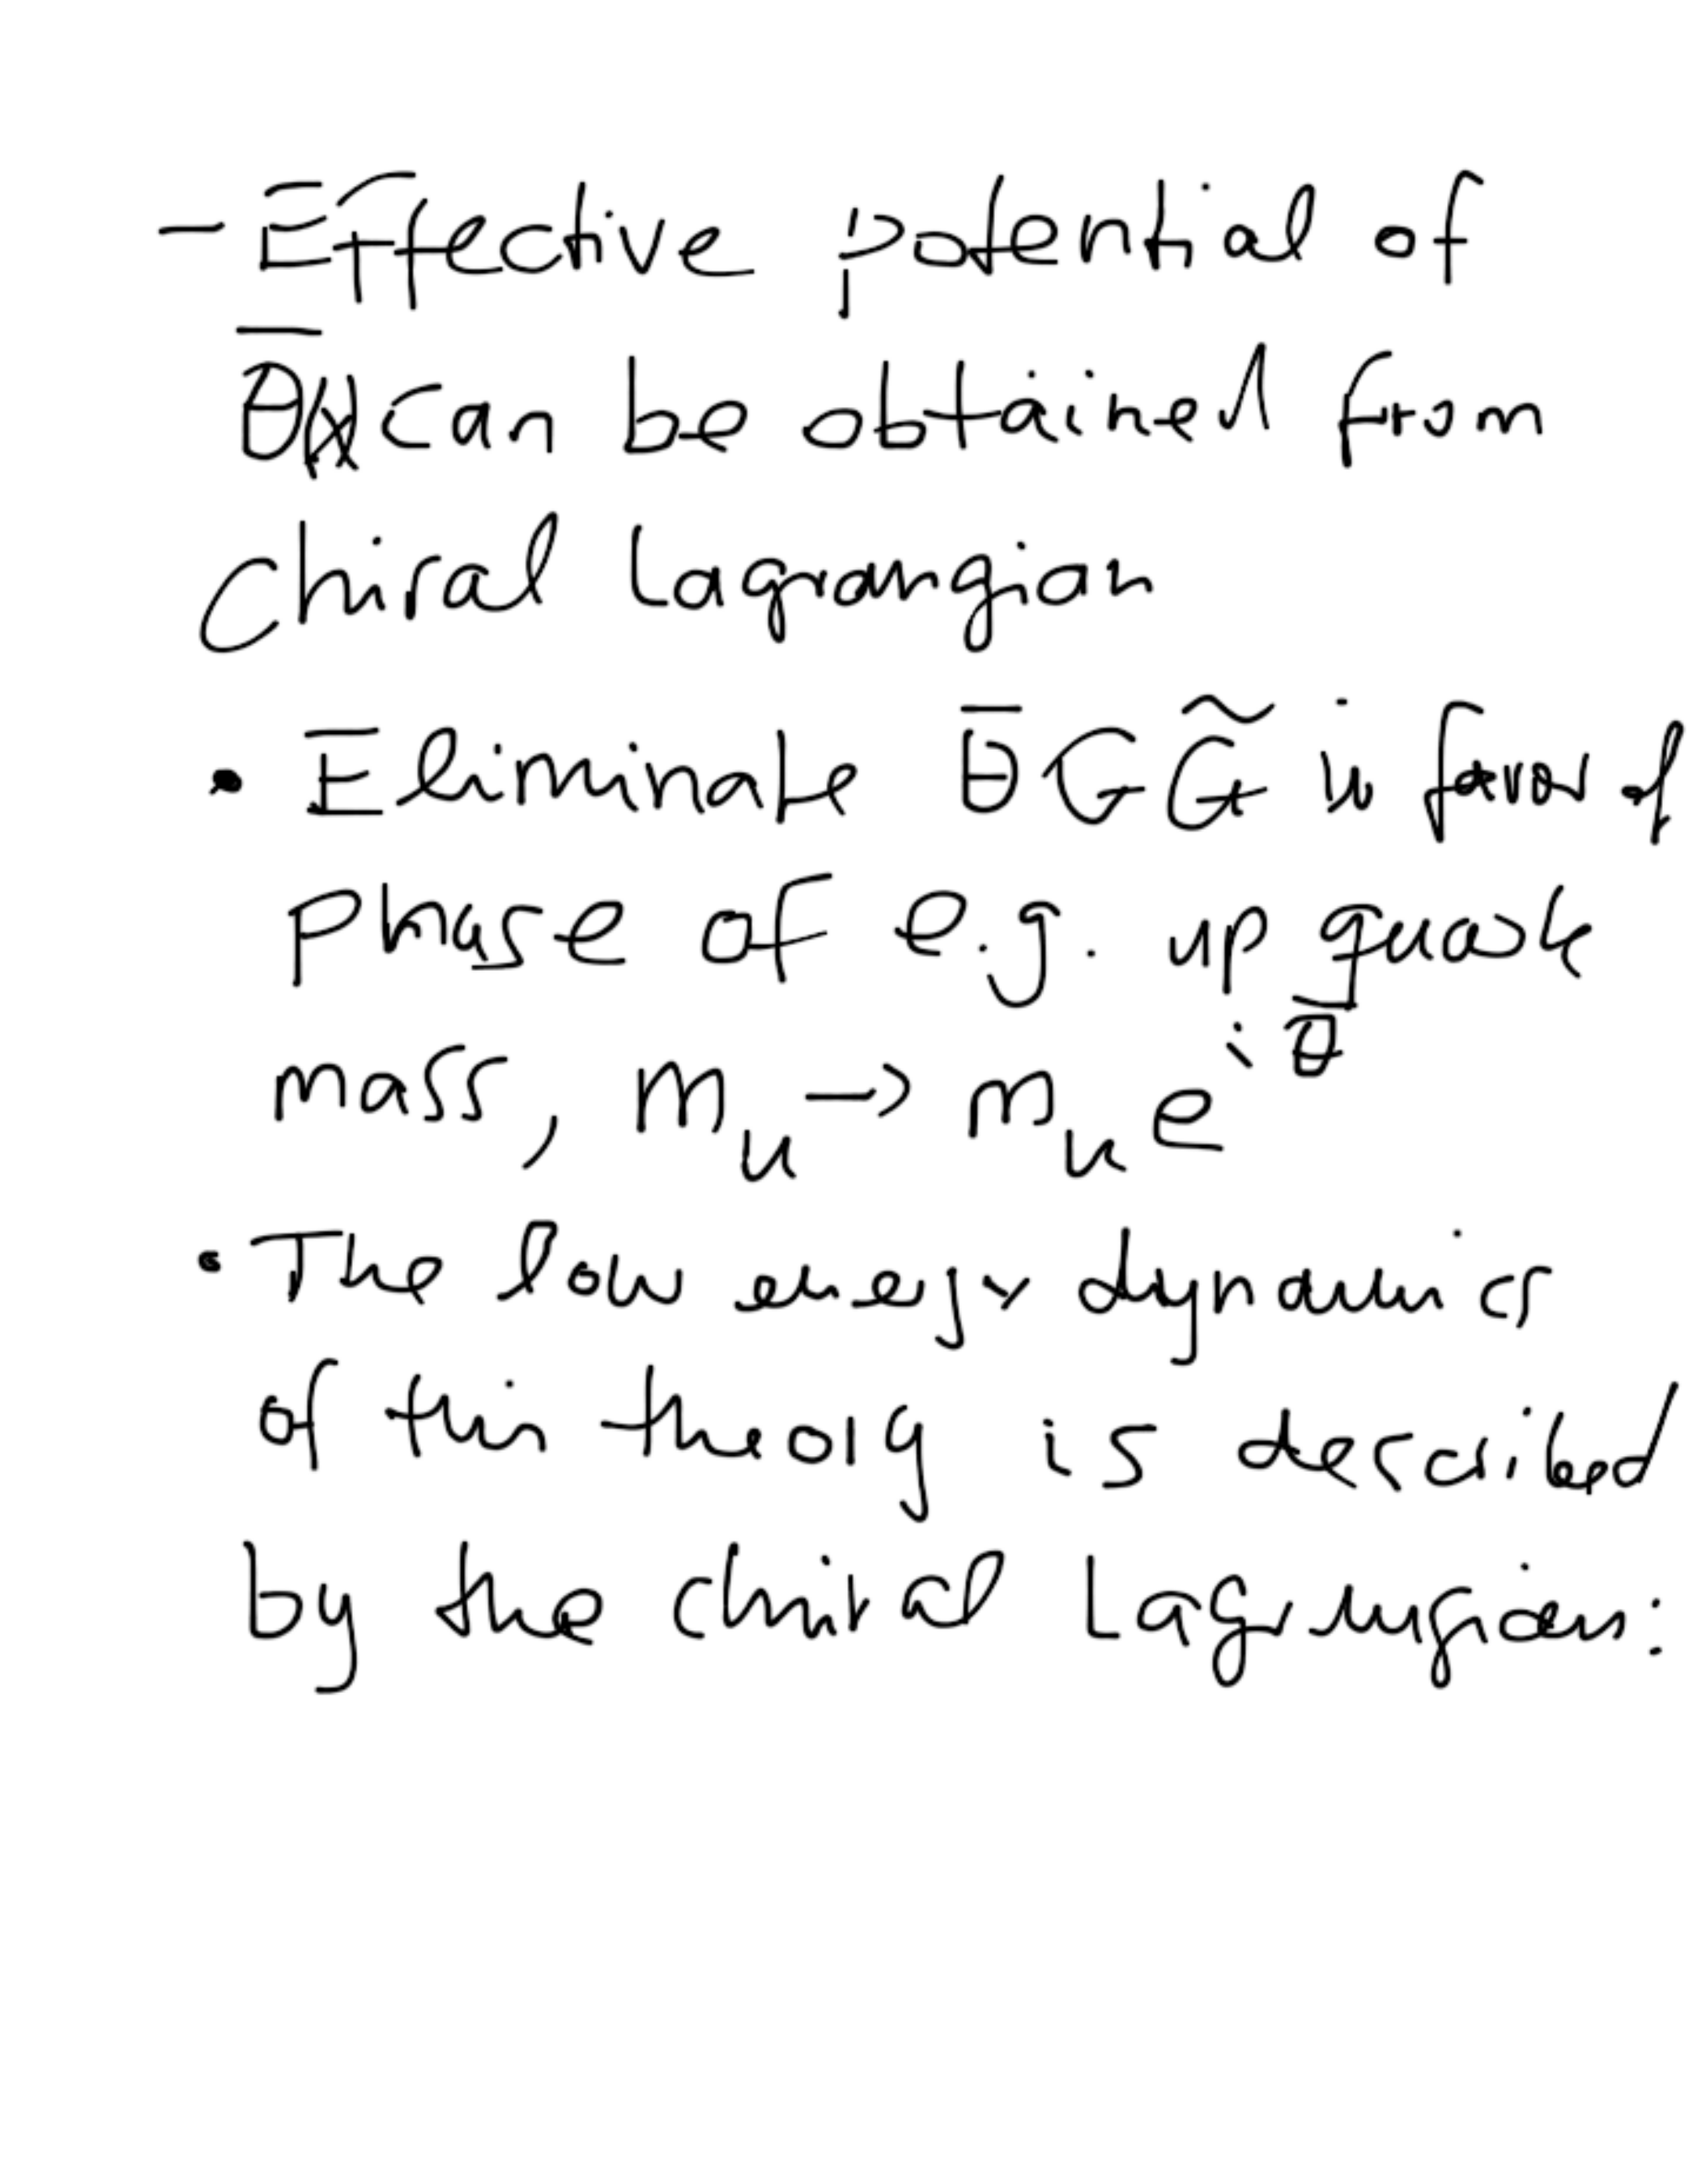 - Effective potential of
θ̄(x) can be obtained from
Chiral Lagrangian
• Eliminate θ̄ G G̃ in favor of
phase of e.g. up quark
mass, m_u → m_u e^{iθ̄}
• The low energy dynamics
of this theory is described
by the chiral Lagrangian: